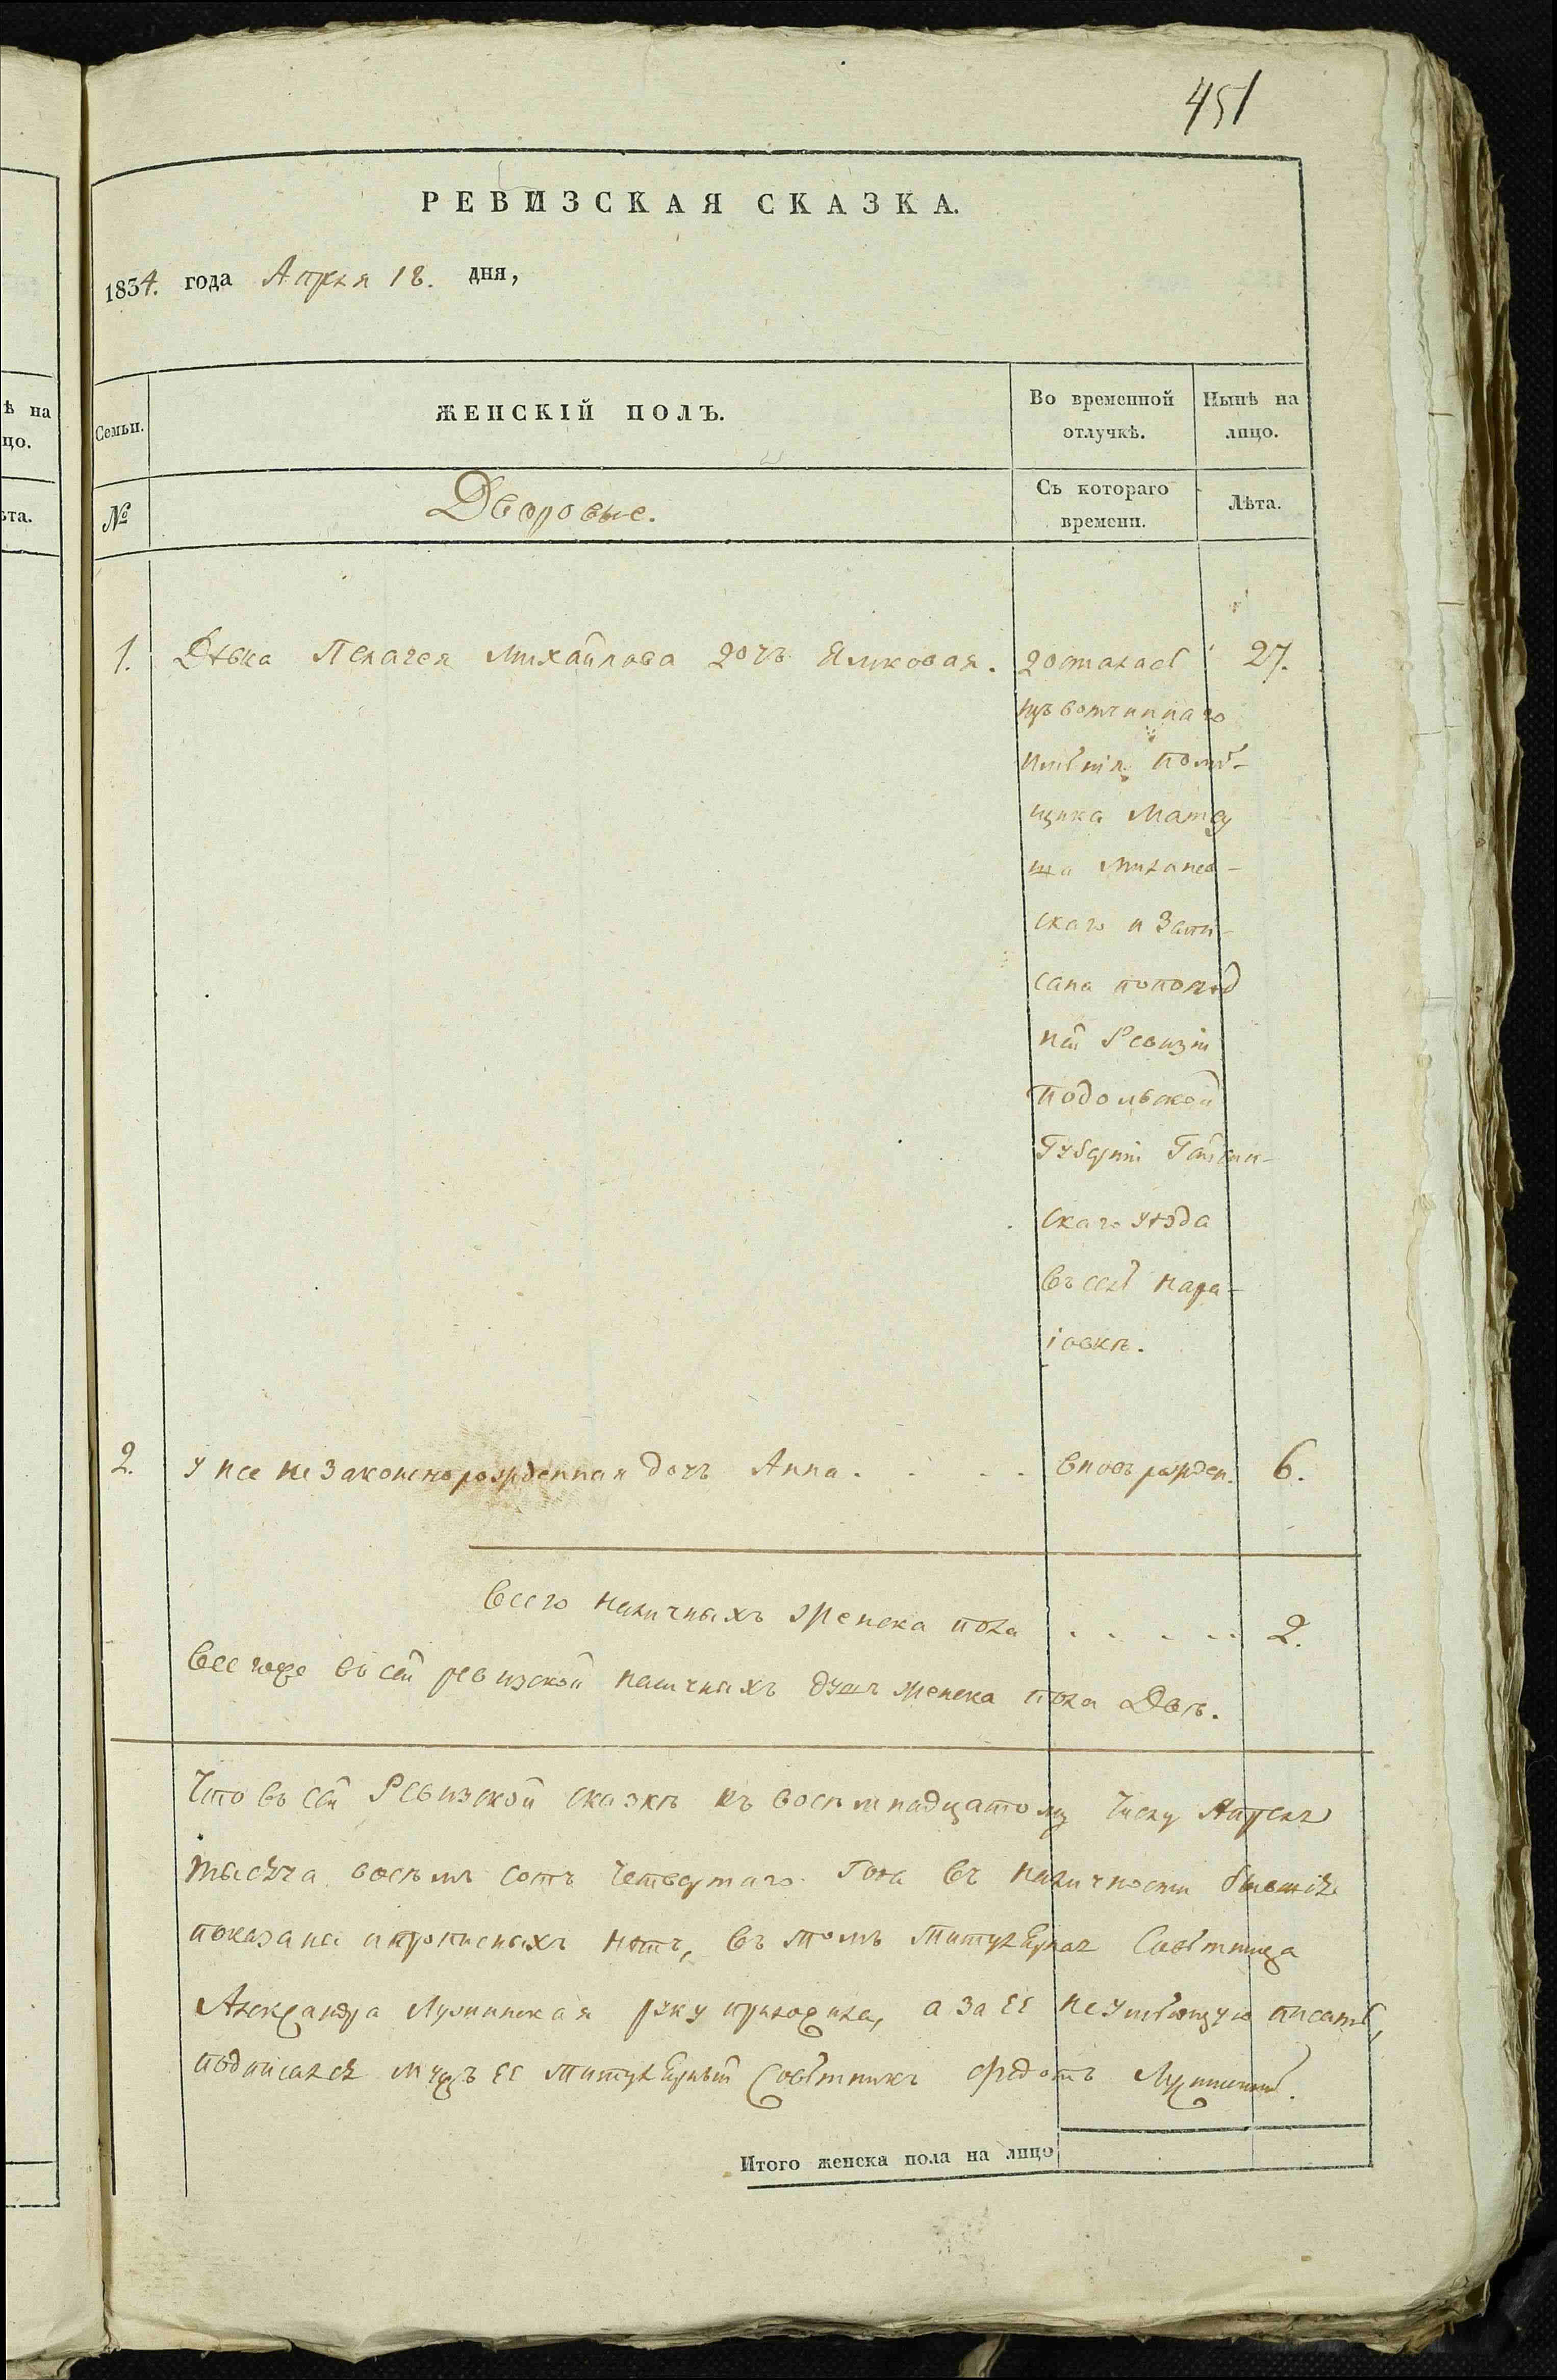 451
РЕВИЗСКАЯ СКАЗКА.
1834. года Апреля 18. дня,
ѣ на
цо.
ѣта.
Семьи.
ЖЕНСКІЙ ПОЛЪ.
Во временной
отлучкѣ.
Нынѣ на
лицо.
№
Дворовые.
Съ котораго
времени.
Лѣта.
1. Дѣвка Пелагея Михайлова дочь Ямковая.
досталась
изъ вотчиннаго
имѣнія помѣ-
щика
и запи-
сана по
ней Ревизіи
Подольской
Губерніи Гайсин-
скаго уѣзда
въ селѣ
іовкѣ.
27.
2. У нее незаконнорожденная дочь Анна . . . .
вновь рожден.
6.
Всего наличныхъ женска пола . . . . . 2.
Все го же въ сей ревизской наличныхъ душъ женска пола Двѣ.
Что въ сей Ревизской сказкѣ къ восемнадцатому числу Апреля
тысяча восемь сотъ четвертаго Года въ наличности бывшіе
показаны и прописныхъ нѣтъ, въ томъ Титулярная Совѣтница
Александра руку приложила, а за ее неумѣющую писать,
подписался мужъ ее Титулярный Совѣтникъ Федотъ
Итого женска пола на лицо